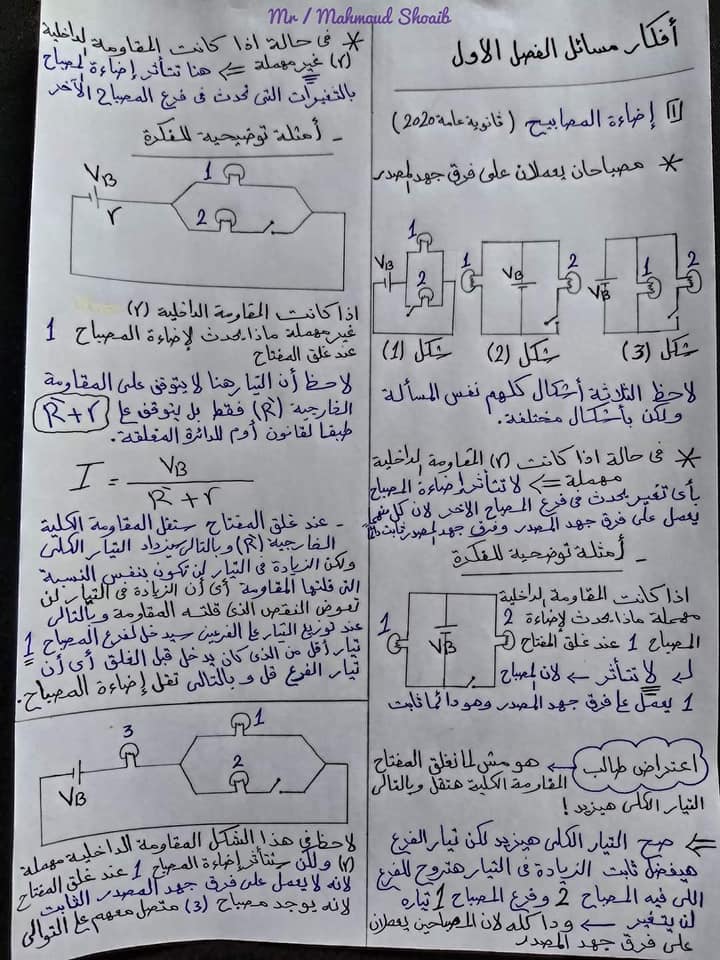 Mr / Mahmoud Shoaib
أفكار مسائل الفصل الأول
1 إضاءة المصابيح (ثانوية عامة 2020)
* مصباحان يعملان على فرق جهد المصدر
1
2
VB
شكل (1)
1
2
VB
شكل (2)
1
2
VB
شكل (3)
لاحظ الثلاثة أشكال كلهم نفس المسألة
ولكن بأشكال مختلفة.
* فى حالة اذا كانت (r) المقاومة الداخلية
مهملة <= لا تتأثر إضاءة المصباح
بأى تغير يحدث فى فرع المصباح الآخر لان كل منهم
يعمل على فرق جهد المصدر وفرق جهد المصدر ثابت
- أمثلة توضحية للفكرة
اذا كانت المقاومة الداخلية
مهملة ماذا يحدث لإضاءة
المصباح 1 عند غلق المفتاح
لا تتأثر ← لان المصباح
1 يعمل على فرق جهد المصدر وهو دائما ثابت
1
2
VB
اعتراض طالب ← هو مش لما نغلق المفتاح
المقاومة الكلية هتقل وبالتالى
التيار الكلى هيزيد!
<= صح التيار الكلى هيزيد لكن تيار الفرع
هيفضل ثابت الزيادة فى التيار هتروح للفرع
اللى فيه المصباح 2 وفرع المصباح 1 تياره
لن يتغير ← ودا كله لان المصباحين يعملان
على فرق جهد المصدر
* فى حالة اذا كانت المقاومة الداخلية
(r) غير مهملة <= هنا تتأثر إضاءة المصباح
بالتغيرات التى تحدث فى فرع المصباح الآخر
- أمثلة توضيحية للفكرة
1
2
VB
r
اذا كانت المقاومة الداخلية (r)
غير مهملة ماذا يحدث لإضاءة المصباح 1
عند غلق المفتاح
لاحظ أن التيار هنا لا يتوقف على المقاومة
الخارجية (R) فقط بل يتوقف على R+r
طبقا لقانون أوم للدائرة المغلقة.
I = VB / R + r
- عند غلق المفتاح ستقل المقاومة الكلية
الخارجية (R) وبالتالى سيزداد التيار الكلى
ولكن الزيادة فى التيار لن تكون بنفس النسبة
التى قلتها المقاومة أى أن الزيادة فى التيار لن
تعوض النقص الذى قلته المقاومة وبالتالى
عند توزيع التيار على الفرعين سيدخل لفرع المصباح 1
تيار أقل من الذى كان يدخل قبل الغلق أى أن
تيار الفرع قل وبالتالى تقل إضاءة المصباح.
1
2
3
VB
لاحظ فى هذا الشكل المقاومة الداخلية مهملة
(r) ولكن ستتأثر إضاءة المصباح 1 عند غلق المفتاح
لانه لا يعمل على فرق جهد المصدر الثابت
لانه يوجد مصباح (3) متصل معهم على التوالى